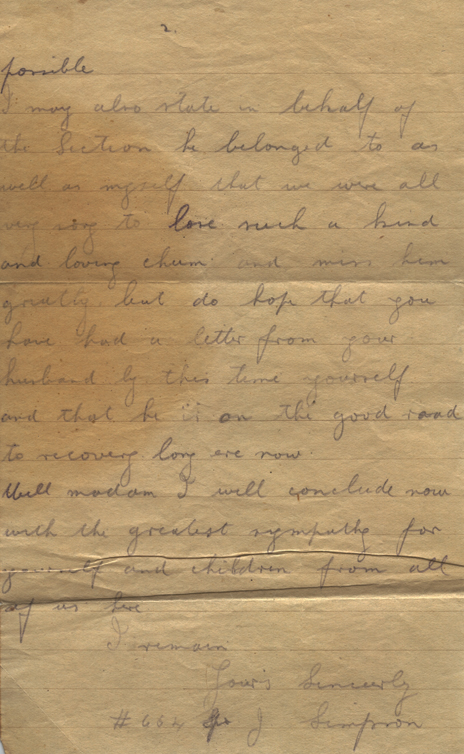 2.
possible
I may also state in behalf of
the Section he belonged to as
well as myself that we were all
very sorry to lose such a kind
and loving chum and miss him
greatly, but do hope that you
have had a letter from your
husband by this time yourself
and that he is on the good road
to recovery long ere now.
Well madam I will conclude now
with the greatest sympathy for
yourself and children from all
of us here
I remain
Yours Sincerly
# 664 J Simpson